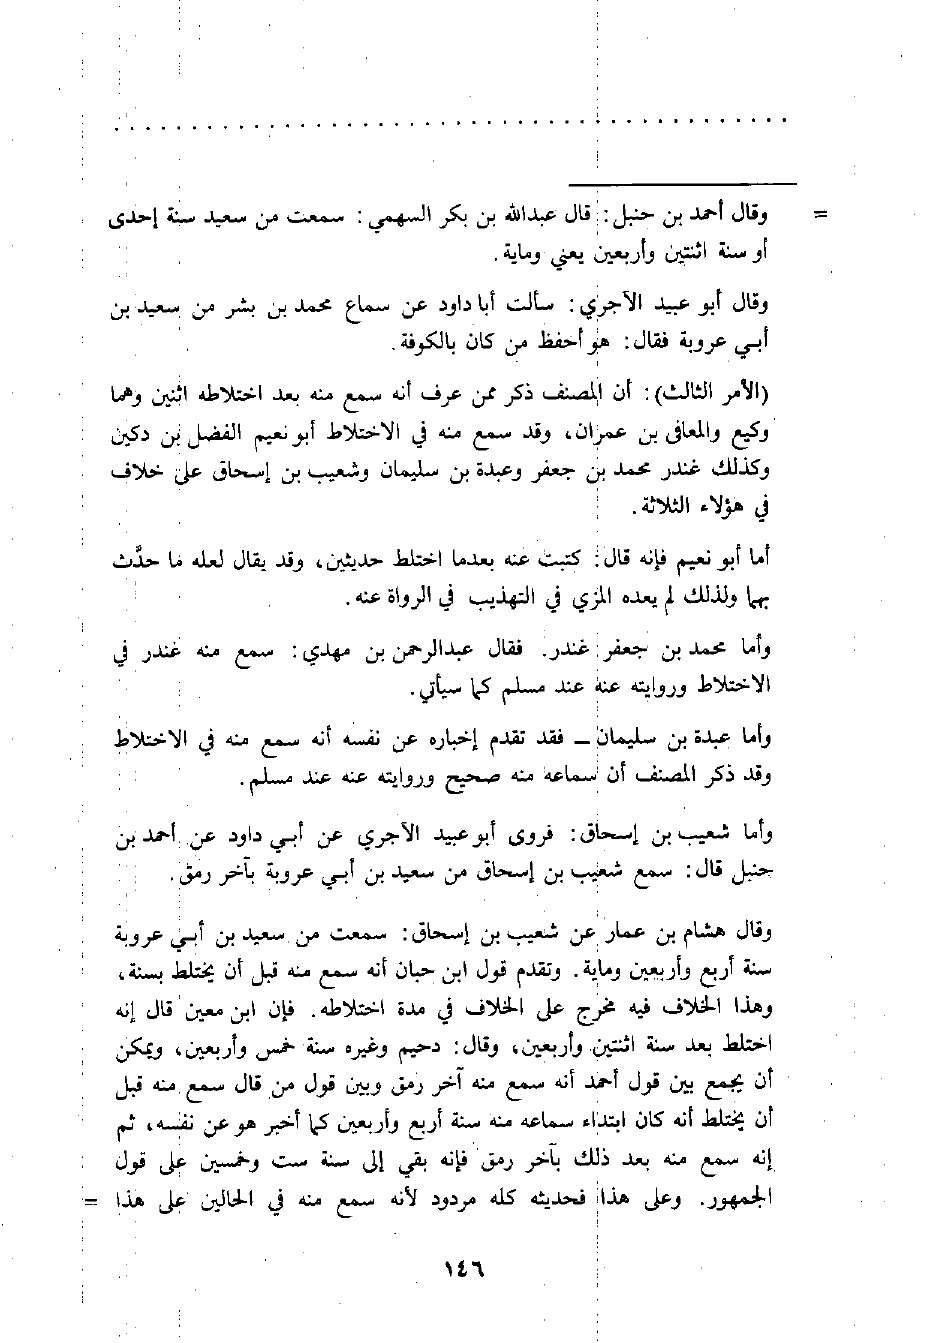 = وقال أحمد بن حنبل: قال عبدالله بن بكر السهمي: سمعت من سعيد سنة إحدى
أو سنة اثنتين وأربعين يعني وماية.
وقال أبو عبيد الآجري: سألت أبا داود عن سماع محمد بن بشر من سعيد بن
أبي عروبة فقال: هو أحفظ من كان بالكوفة.
(الأمر الثالث): أن المصنف ذكر ممن عرف أنه سمع منه بعد اختلاطه اثنين وهما
وكيع والمعافى بن عمران، وقد سمع منه في الاختلاط أبو نعيم الفضل بن دكين
وكذلك غندر محمد بن جعفر وعبدة بن سليمان وشعيب بن إسحاق على خلاف
في هؤلاء الثلاثة.
أما أبو نعيم فإنه قال: كتبت عنه بعدما اختلط حديثين، وقد يقال لعله ما حدَّث
بهما ولذلك لم يعده المزي في التهذيب في الرواة عنه.
وأما محمد بن جعفر غندر. فقال عبدالرحمن بن مهدي: سمع منه غندر في
الاختلاط وروايته عنه عند مسلم كما سيأتي.
وأما عبدة بن سليمان ــ فقد تقدم إخباره عن نفسه أنه سمع منه في الاختلاط
وقد ذكر المصنف أن سماعه منه صحيح وروايته عنه عند مسلم.
وأما شعيب بن إسحاق: فروى أبو عبيد الآجري عن أبي داود عن أحمد بن
حنبل قال: سمع شعيب بن إسحاق من سعيد بن أبي عروبة بآخر رمق.
وقال هشام بن عمار عن شعيب بن إسحاق: سمعت من سعيد بن أبي عروبة
سنة أربع وأربعين وماية. وتقدم قول ابن حبان أنه سمع منه قبل أن يختلط بسنة،
وهذا الخلاف فيه مخرج على الخلاف في مدة اختلاطه. فإن ابن معين قال إنه
اختلط بعد سنة اثنتين وأربعين، وقال: دحيم وغيره سنة خمس وأربعين، ويمكن
أن يجمع بين قول أحمد أنه سمع منه آخر رمق وبين قول من قال سمع منه قبل
أن يختلط أنه كان ابتداء سماعه منه سنة أربع وأربعين كما أخبر هو عن نفسه، ثم
إنه سمع منه بعد ذلك بآخر رمق فإنه بقي إلى سنة ست وخمسين على قول
الجمهور. وعلى هذا فحديثه كله مردود لأنه سمع منه في الحالين على هذا =
١٤٦